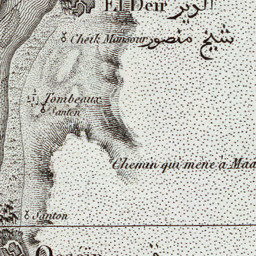 El Deir الدير
Cheik Mansour شيخ منصور
Tombeaux
Santen
Chemin qui mene a Maa
Santon